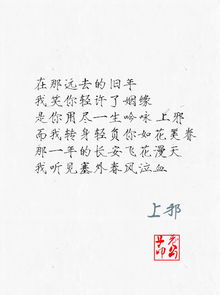 在那远去的旧年
我笑你轻许了姻缘
是你用尽一生吟咏 上邪
而我转身轻负你如花美眷
那一年的长安飞花漫天
我听见塞外春风泣血
上邪